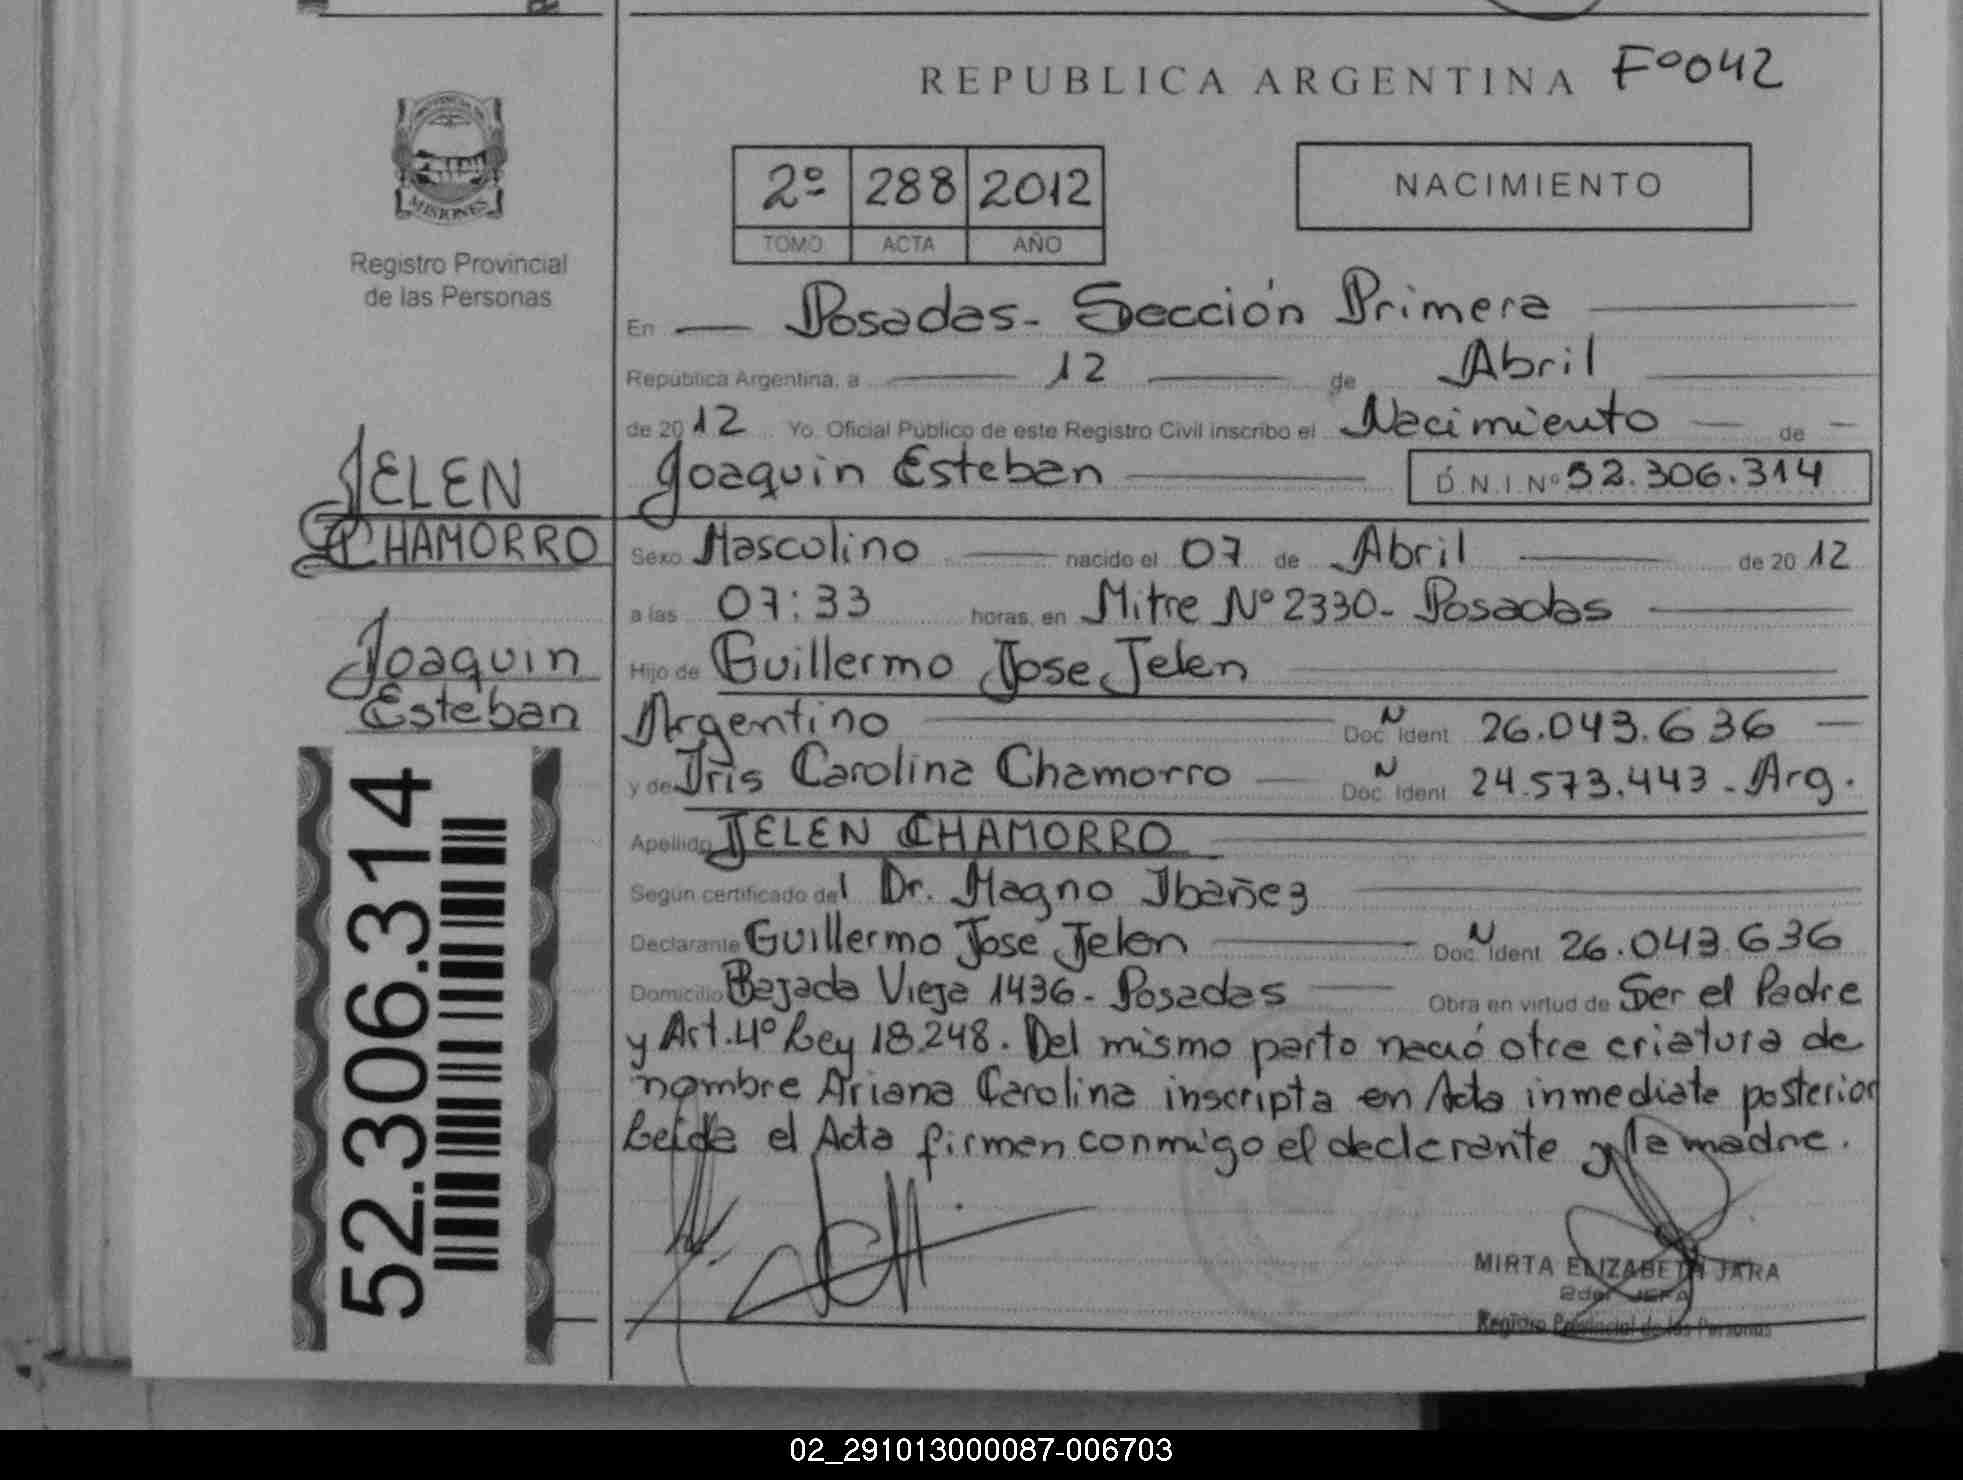 REPUBLICA ARGENTINA Fº042
MISIONES
Registro Provincial
de las Personas
2º 288 2012
TOMO ACTA AÑO
NACIMIENTO
En Posadas - Sección Primera
República Argentina, a 12 de Abril
de 2012 Yo, Oficial Público de este Registro Civil inscribo el Nacimiento de
Joaquin Esteban D.N.I. Nº 52.306.314
JELEN
CHAMORRO
Joaquin
Esteban
52.306.314
Sexo Masculino nacido el 07 de Abril de 2012
a las 07:33 horas, en Mitre Nº 2330 - Posadas
Hijo de Guillermo Jose Jelen
Argentino Doc. N Ident 26.043.636
y de Iris Carolina Chamorro Doc. N Ident 24.573.443 - Arg.
Apellido JELEN CHAMORRO
Según certificado del Dr. Magno Ibañez
Declarante Guillermo Jose Jelen Doc. N Ident 26.043.636
Domicilio Bajada Vieja 1436 - Posadas Obra en virtud de Ser el Padre
y Art. 4º Ley 18.248. Del mismo parto nació otra criatura de
nombre Ariana Carolina inscripta en Acta inmediata posterior
Leída el Acta firman conmigo el declarante y la madre.
MIRTA ELIZABETH JARA
2da. JEFA
Registro Provincial de las Personas
02_291013000087-006703